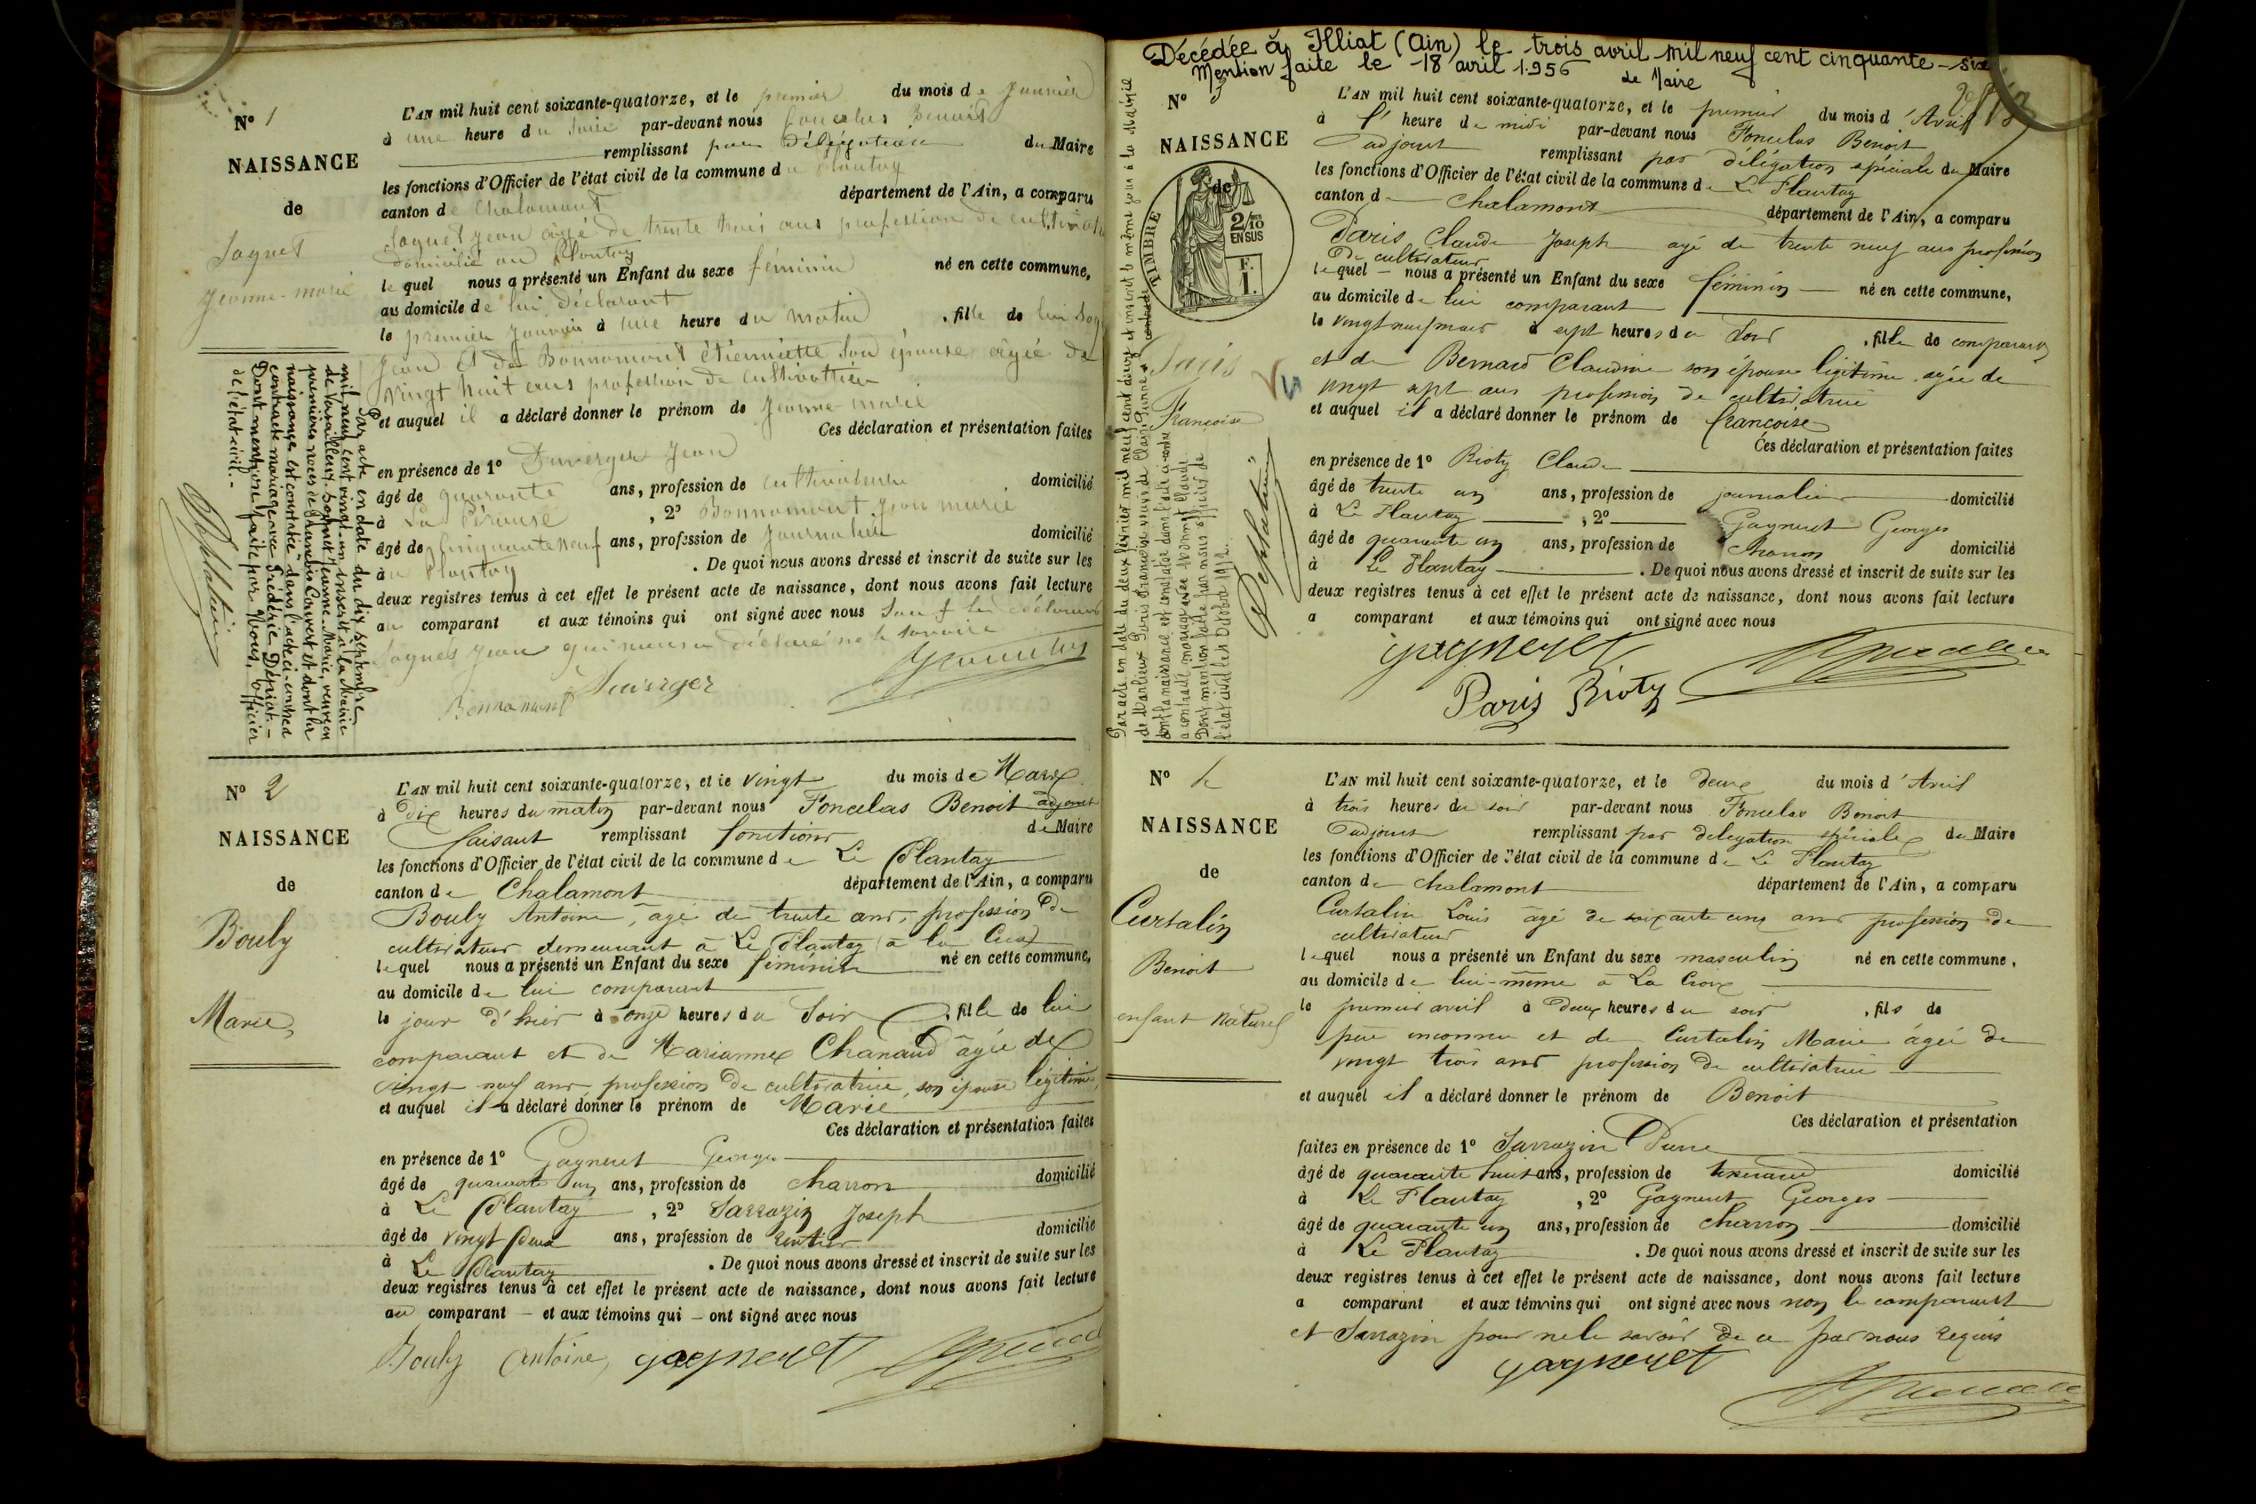 N° 1
NAISSANCE
de
Soquet
Jeanne-marie
L'AN mil huit cent soixante-quatorze, et le premier du mois de Janvier
à une heure du soir par-devant nous Foncelas Benoit
remplissant par Délégation du Maire
les fonctions d'Officier de l'état civil de la commune du Plantay
canton de Chalamont département de l'Ain, a comparu
Soquet Jean âgé de trente trois ans profession de cultivateur
domicilié au Plantay
lequel nous a présenté un Enfant du sexe féminin né en cette commune,
au domicile de lui déclarant
le premier Janvier à une heure du matin, fille de lui Soquet
Jean et de Bonnamont étiennette son épouse âgée de
vingt huit ans profession de cultivatrice
et auquel il a déclaré donner le prénom de Jeanne marie
Ces déclaration et présentation faites
en présence de 1° Duverger Jean
âgé de quarante ans, profession de cultivateur domicilié
à La Pérouse, 2° Bonnamont Jean marie
âgé de cinquante neuf ans, profession de Journalier domicilié
au Plantay. De quoi nous avons dressé et inscrit de suite sur les
deux registres tenus à cet effet le présent acte de naissance, dont nous avons fait lecture
au comparant et aux témoins qui ont signé avec nous sauf le déclarant
Soquet Jean qui nous a déclaré ne le savoir
Bonnamont Duverger
Par acte en date du dix septembre
mil neuf cent vingt-un inscrit à la Mairie
de Versailleux, Soquet Jeanne-Marie, veuve en
premières noces de Couvert et dont la
naissance est constatée dans l'acte ci-contre a
contracté mariage avec Frédéric Dépriat.-
Dont mention faite par Nous, officier
de l'état-civil.-
N° 2
NAISSANCE
de
Bouly
Marie
L'AN mil huit cent soixante-quatorze, et le vingt du mois de Mars
à dix heures du matin par-devant nous Foncelas Benoit adjoint
faisant remplissant fonctions de Maire
les fonctions d'Officier de l'état civil de la commune de Le Plantay
canton de Chalamont département de l'Ain, a comparu
Bouly Antoine, âgé de trente ans, profession de
cultivateur demeurant à Le Plantay à la
lequel nous a présenté un Enfant du sexe féminin né en cette commune,
au domicile de lui comparant
le jour d'hier à onze heures du Soir, fille de lui
comparant et de Marianne Chanaud âgée de
vingt neuf ans profession de cultivatrice, son épouse légitime,
et auquel il a déclaré donner le prénom de Marie
Ces déclaration et présentation faites
en présence de 1° Gagneret Georges
âgé de quarante un ans, profession de charron domicilié
à Le Plantay, 2° Sarrazin Joseph
âgé de vingt deux ans, profession de rentier domicilié
à Le Plantay. De quoi nous avons dressé et inscrit de suite sur les
deux registres tenus à cet effet le présent acte de naissance, dont nous avons fait lecture
au comparant - et aux témoins qui - ont signé avec nous
Bouly Antoine, gagneret
Décédée à Illiat (Ain) le trois avril mil neuf cent cinquante-six
Mention faite le 18 avril 1956
le Maire
N° 3
NAISSANCE
de
TIMBRE
2/10 EN SUS
Paris
Françoise
L'AN mil huit cent soixante-quatorze, et le premier du mois d'Avril
à l' heure de midi par-devant nous Foncelas Benoit
adjoint remplissant par délégation spéciale du Maire
les fonctions d'Officier de l'état civil de la commune de Le Plantay
canton de Chalamont département de l'Ain, a comparu
Paris Claude Joseph agé de trente neuf ans profession
de cultivateur
lequel nous a présenté un Enfant du sexe féminin né en cette commune,
au domicile de lui comparant
le vingt neuf mars à sept heures du soir, fille de comparant
et de Bernard Claudine son épouse légitime agée de
vingt sept ans profession de cultivatrice
et auquel il a déclaré donner le prénom de françoise
Ces déclaration et présentation faites
en présence de 1° Bioty Claude
âgé de trente un ans, profession de journalier domicilié
à Le Plantay, 2° Gagneret Georges
âgé de quarante un ans, profession de charron domicilié
à Le Plantay. De quoi nous avons dressé et inscrit de suite sur les
deux registres tenus à cet effet le présent acte de naissance, dont nous avons fait lecture
a comparant et aux témoins qui ont signé avec nous
gagneret
Paris Bioty
Par acte en date du deux février mil neuf cent douze et inscrit le même jour à la Mairie
de Marlieux Paris Françoise veuve de
dont la naissance est constatée dans l'acte ci-contre
a contracté mariage avec Claude
Dont mention faite par nous officier de
l'état civil le Octobre 1912.
N° 4
NAISSANCE
de
Curtalin
Benoit
enfant naturel
L'AN mil huit cent soixante-quatorze, et le deux du mois d'Avril
à trois heures du soir par-devant nous Foncelas Benoit
adjoint remplissant par délégation spéciale du Maire
les fonctions d'Officier de l'état civil de la commune de Le Plantay
canton de Chalamont département de l'Ain, a comparu
Curtalin Louis âgé de soixante cinq ans profession de
cultivateur
lequel nous a présenté un Enfant du sexe masculin né en cette commune,
au domicile de lui-même à La Croix
le premier avril à deux heures du soir, fils de
père inconnu et de Curtalin Marie âgée de
vingt trois ans profession de cultivatrice
et auquel il a déclaré donner le prénom de Benoit
Ces déclaration et présentation
faites en présence de 1° Sarrazin Pierre
âgé de quarante huit ans, profession de tisserand domicilié
à Le Plantay, 2° Gagneret Georges
âgé de quarante un ans, profession de charron domicilié
à Le Plantay. De quoi nous avons dressé et inscrit de suite sur les
deux registres tenus à cet effet le présent acte de naissance, dont nous avons fait lecture
a comparant et aux témoins qui ont signé avec nous non le comparant
et Sarrazin pour ne le savoir de ce par nous requis
gagneret